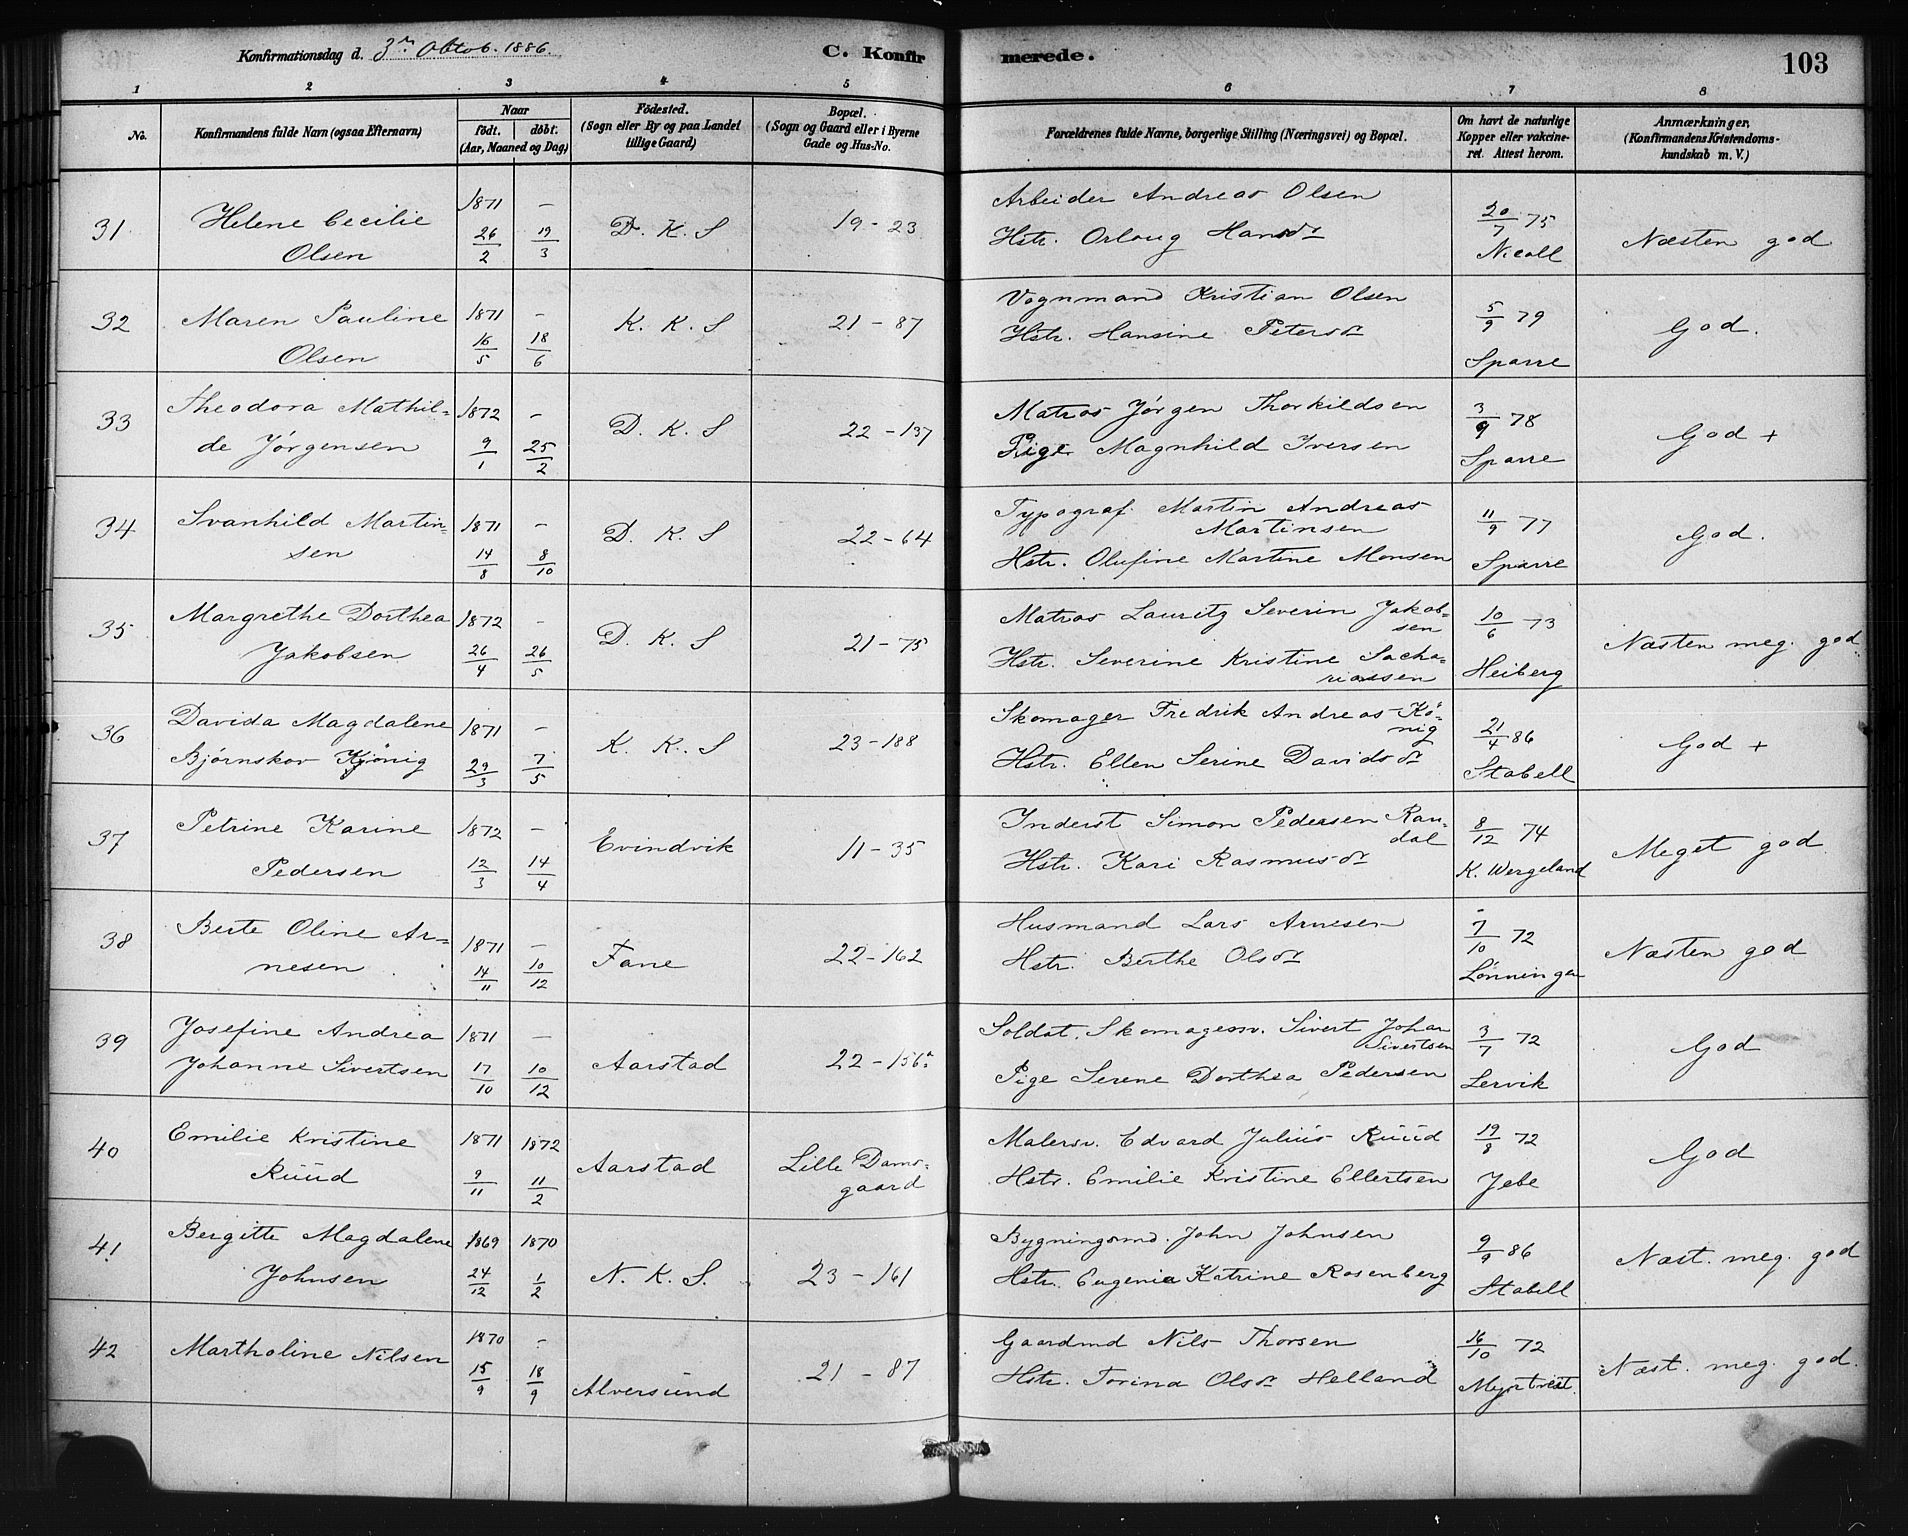 Konfirmationsdag d. 3die Oktob. 1886.
C. Konfirmerede.
103
1 2 3 4 5 6 7 8
No.
Konfirmandens fulde Navn (ogsaa Efternavn)
Naar
født. døbt.
(Aar, Maaned og Dag)
Fødested.
(Sogn eller By og paa Landet
tillige Gaard)
Bopæl.
(Sogn og Gaard eller i Byerne
Gade og Hus-No.
Forældrenes fulde Navne, borgerlige Stilling (Næringsvei) og Bopæl.
Om havt de naturlige
Kopper eller vakcine-
ret. Attest herom.
Anmærkninger.
(Konfirmandens Kristendoms-
kundskab m. V.)
31 Helene Cecilie Olsen 1871 26/2 – 19/3 D. K. S 19–23
Arbeider Andreas Olsen
Hstr. Orloug Hansdr
20/7 75 Nicoll Næsten god
32 Maren Pauline Olsen 1871 16/5 – 18/6 K. K. S 21–87
Vognmand Kristian Olsen
Hstr. Hansine Petersdr
5/9 79 Sparre God.
33 Theodora Mathil-
de Jørgensen 1872 9/1 – 25/2 D. K. S 22–137
Matros Jørgen Thorkildsen
Pige Magnhild Iversen
3/9 78 Sparre God +
34 Svanhild Martin-
sen 1871 14/8 – 8/10 D. K. S 22–64
Typograf Martin Andreas
Martinsen
Hstr. Olufine Martine Monsen
11/9 77 Sparre God.
35 Margrethe Dorthea
Jakobsen 1872 26/4 – 26/5 D. K. S 21–75
Matros Lauritz Severin Jakob-
sen
Hstr. Severine Kristine Sacha-
riassen
10/6 73 Heiberg Næsten meg. god.
36 Davida Magdalene
Bjørnskov Kjönig 1871 29/3 – 7/5 K. K. S 23–188
Skomager Fredrik Andreas Kö-
nig
Hstr. Ellen Serine Davidsdr
21/4 86 Stabell God +
37 Petrine Karine
Pedersen 1872 12/3 – 14/4 Evindvik 11–35
Inderst Simon Pedersen Ran-
dal
Hstr. Kari Rasmusdr
8/12 74 K. Wergeland Meget god
38 Berte Oline Ar-
nesen 1871 14/11 – 10/12 Fane 22–162
Husmand Lars Arnesen
Hstr. Berthe Olsdr
7/10 72 Lønningen Næsten god
39 Josefine Andrea
Johanne Sivertsen 1871 17/10 – 10/12 Aarstad 22–156a
Soldat, Skomagersv. Sivert Johan
Sivertsen
Pige Serene Dorthea Pedersen
3/7 72 Lervik God
40 Emilie Kristine
Ruud 1871 9/11 1872 11/2 Aarstad Lille Dams-
gaard
Malersv. Edvard Julius Ruud
Hstr. Emilie Kristine Ellertsen
19/8 72 Jebe God
41 Bergitte Magdalene
Johnsen 1869 24/12 1870 1/2 N. K. S. 23–161
Bygningsmd. John Johnsen
Hstr. Eugenia Katrine Rosenberg
9/9 86 Stabell Næst. meg. god
42 Martholine Nilsen 1870 15/9 – 18/9 Alversund 21–87
Gaardmd Nils Thorsen
Hstr. Torina Olsdr Helland
16/10 72 Myrtvedt. Næst. meg. god.